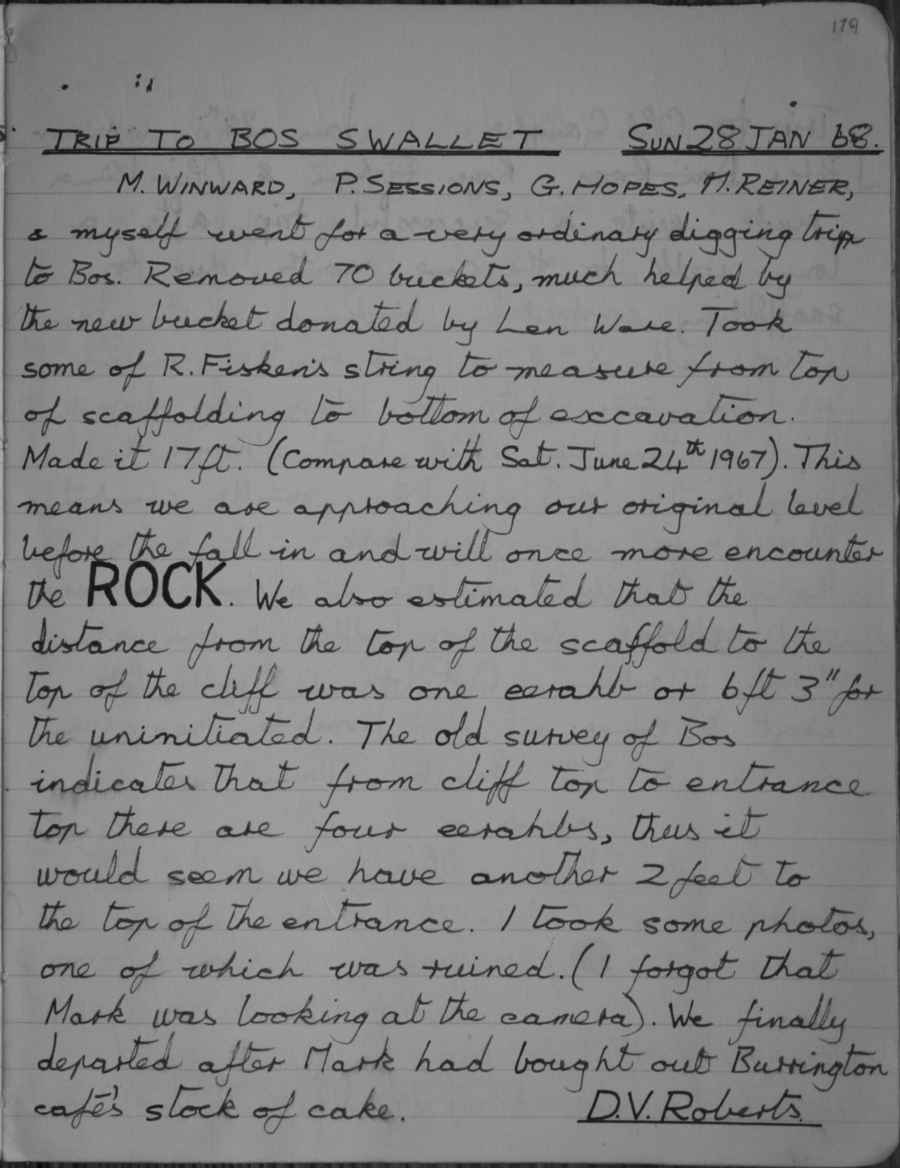 179
TRIP TO BOS SWALLET SUN 28 JAN 68.
M. WINWARD, P. SESSIONS, G. HOPES, M. REINER,
& myself went for a very ordinary digging trip
to Bos. Removed 70 buckets, much helped by
the new bucket donated by Len Ware. Took
some of R. Fisken's string to measure from top
of scaffolding to bottom of exccavation.
Made it 17ft. (Compare with Sat. June 24th 1967). This
means we are approaching our original level
before the fall in and will once more encounter
the ROCK. We also estimated that the
distance from the top of the scaffold to the
top of the cliff was one eerahb or 6ft 3" for
the uninitiated. The old survey of Bos
indicates that from cliff top to entrance
top there are four eerahbs, thus it
would seem we have another 2 feet to
the top of the entrance. I took some photos,
one of which was ruined. (I forgot that
Mark was looking at the camera). We finally
departed after Mark had bought out Burrington
café's stock of cake. D.V. Roberts